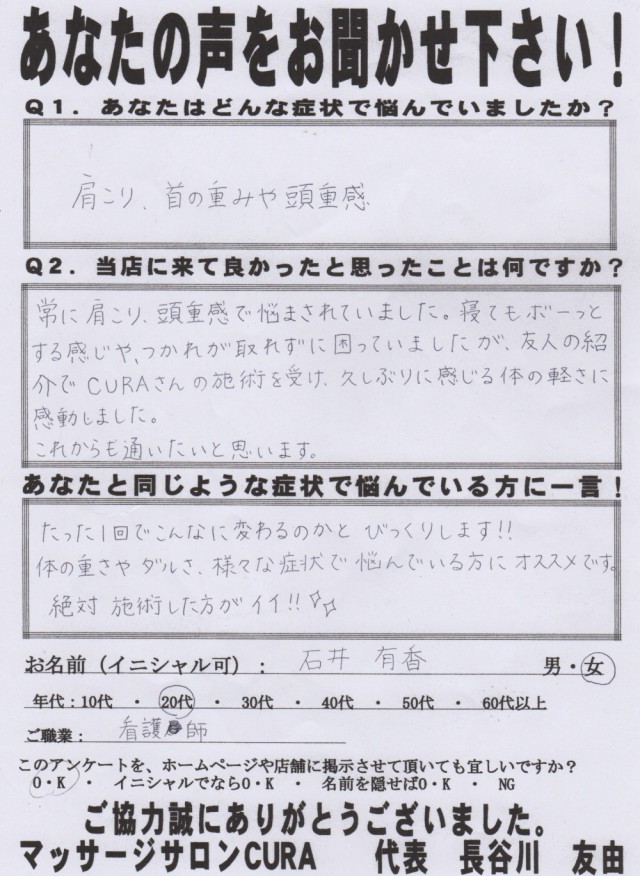 あなたの声をお聞かせ下さい！
Q1．あなたはどんな症状で悩んでいましたか？
肩こり、首の重みや頭重感
Q2．当店に来て良かったと思ったことは何ですか？
常に肩こり、頭重感で悩まされていました。寝てもボーっと
する感じや、つかれが取れずに困っていましたが、友人の紹
介でCURAさんの施術を受け、久しぶりに感じる体の軽さに
感動しました。
これからも通いたいと思います。
あなたと同じような症状で悩んでいる方に一言！
たった1回でこんなに変わるのかと びっくりします!!
体の重さや ダルさ、様々な症状で 悩んでいる方に オススメです。
絶対 施術した方がイイ!!
お名前（イニシャル可）： 石井 有香 男・女
年代：10代 ・ 20代 ・ 30代 ・ 40代 ・ 50代 ・ 60代以上
ご職業： 看護師
このアンケートを、ホームページや店舗に掲示させて頂いても宜しいですか？
O・K ・ イニシャルでならO・K ・ 名前を隠せばO・K ・ NG
ご協力誠にありがとうございました。
マッサージサロンCURA 代表 長谷川 友由